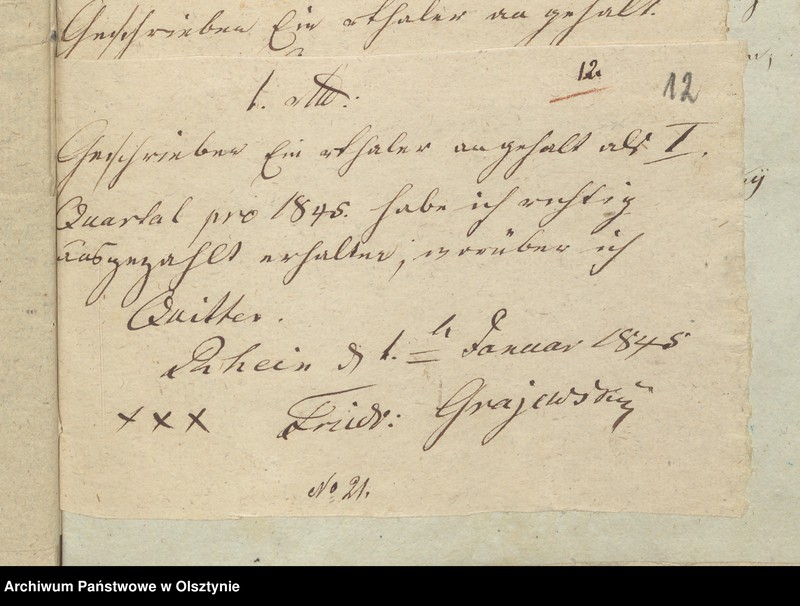 Geschrieben Ein rthaler an gehalt.
12. 12
1. rtl:
Geschrieben Ein rthaler an gehalt als I.
Quartal pro 1845. habe ich richtig
ausgezahlt erhalten, worüber ich
Quitter.
Rhein d 1. Januar 1845
xxx Friedr: Grajewsky
No 21.
Archiwum Państwowe w Olsztynie